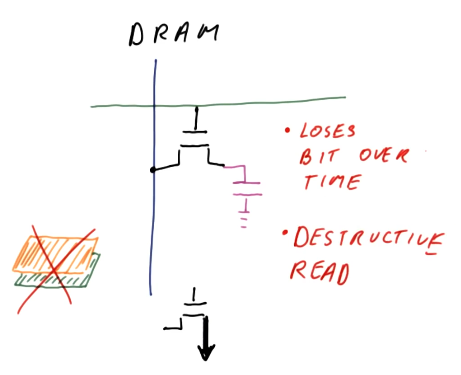 DRAM
• LOSES
BIT OVER
TIME
• DESTRUCTIVE
READ